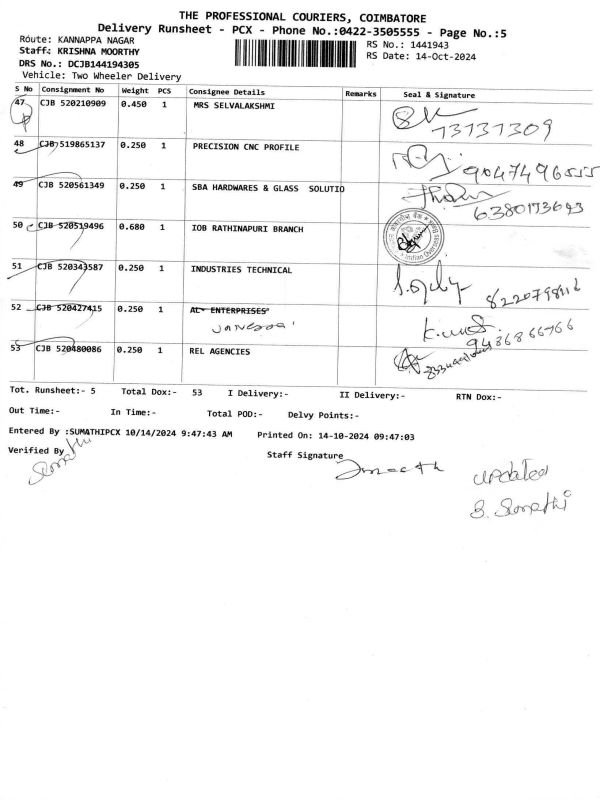 THE PROFESSIONAL COURIERS, COIMBATORE
Delivery Runsheet - PCX - Phone No.:0422-3505555 - Page No.:5
Route: KANNAPPA NAGAR
Staff: KRISHNA MOORTHY
DRS No.: DCJB144194305
Vehicle: Two Wheeler Delivery
RS No.: 1441943
RS Date: 14-Oct-2024
S No Consignment No Weight PCS Consignee Details Remarks Seal & Signature
47 CJB 520210909 0.450 1 MRS SELVALAKSHMI
73737309
48 CJB 519865137 0.250 1 PRECISION CNC PROFILE
9047496555
49 CJB 520561349 0.250 1 SBA HARDWARES & GLASS SOLUTIO
6380173643
50 CJB 520519496 0.680 1 IOB RATHINAPURI BRANCH
51 CJB 520343587 0.250 1 INDUSTRIES TECHNICAL
52 CJB 520427415 0.250 1 AL- ENTERPRISES
53 CJB 520480086 0.250 1 REL AGENCIES
Tot. Runsheet:- 5 Total Dox:- 53 I Delivery:- II Delivery:- RTN Dox:-
Out Time:- In Time:- Total POD:- Delvy Points:-
Entered By :SUMATHIPCX 10/14/2024 9:47:43 AM Printed On: 14-10-2024 09:47:03
Verified By
Sumathi
Staff Signature
updated
B. Sumathi